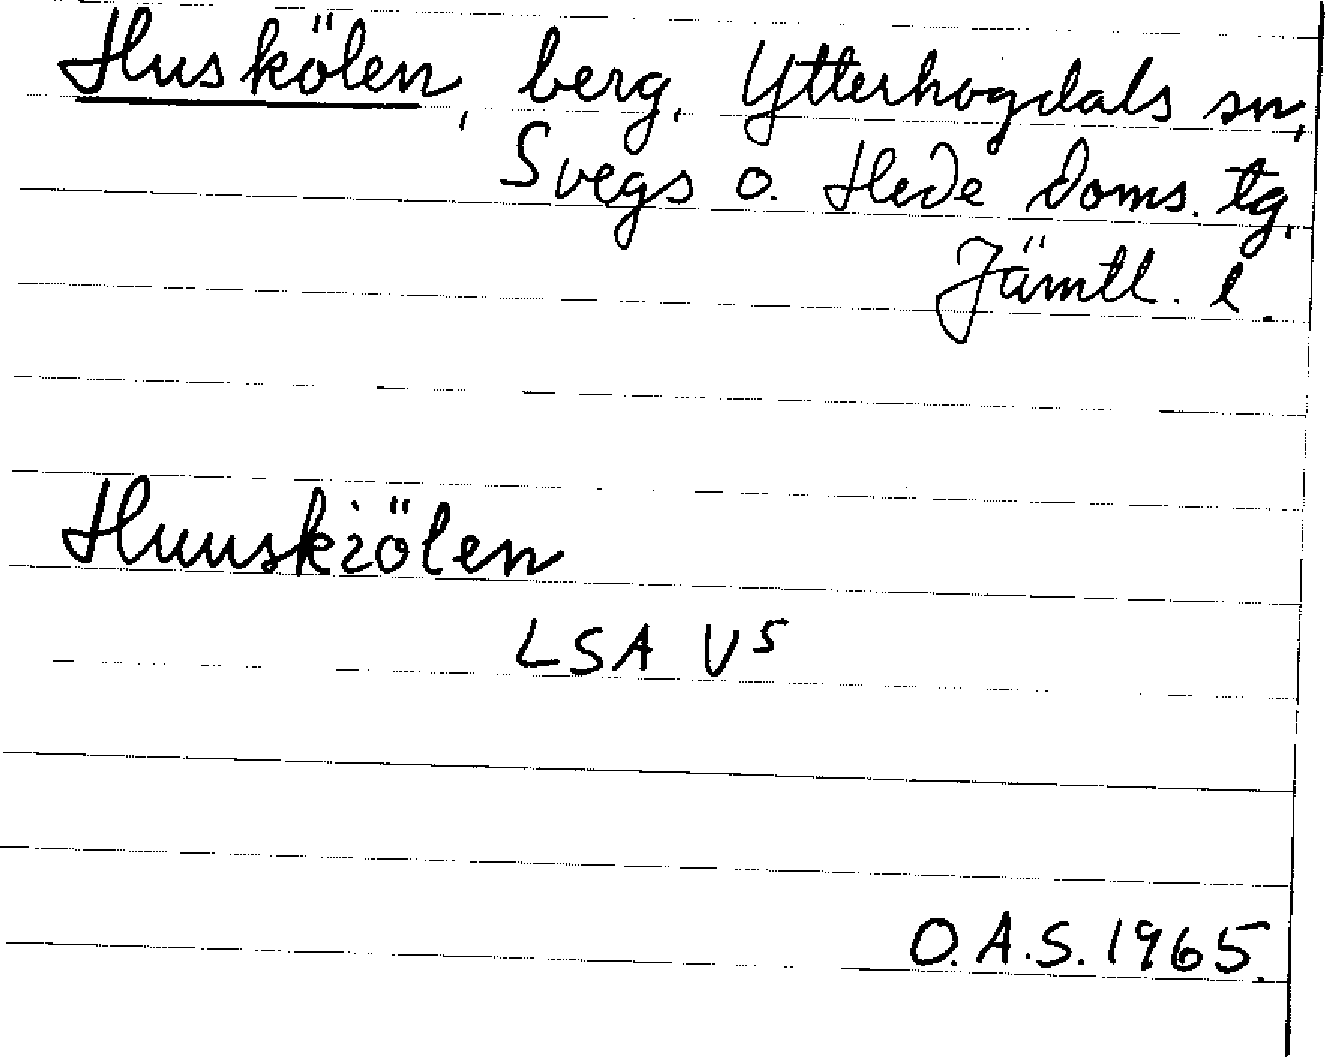 Huskölen, berg, Ytterhogdals sn,
Svegs o. Hede doms. tg,
Jämtl. l.
Huuskiölen
LSA V5
O.A.S. 1965.